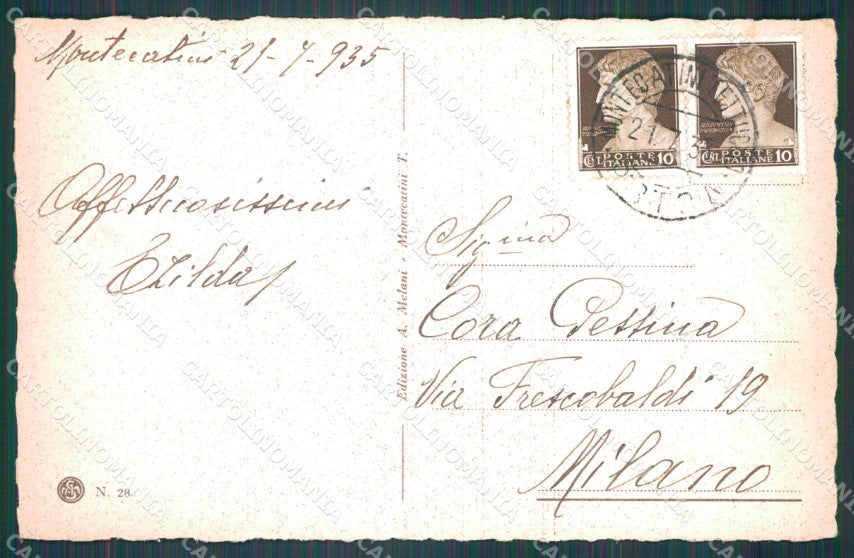 Montecatini 21-7-935
Affettuosissimi
Ezilda
N. 28
Edizione A. Melani - Montecatini T.
POSTE
ITALIANE
CENT. 10
POSTE
ITALIANE
CENT. 10
MONTECATINI TETTUCCIO
21.7.3
PISTOIA
Sig.ina
Cora Pessina
Via Frescobaldi 19
Milano
CARTOLINOMANIA